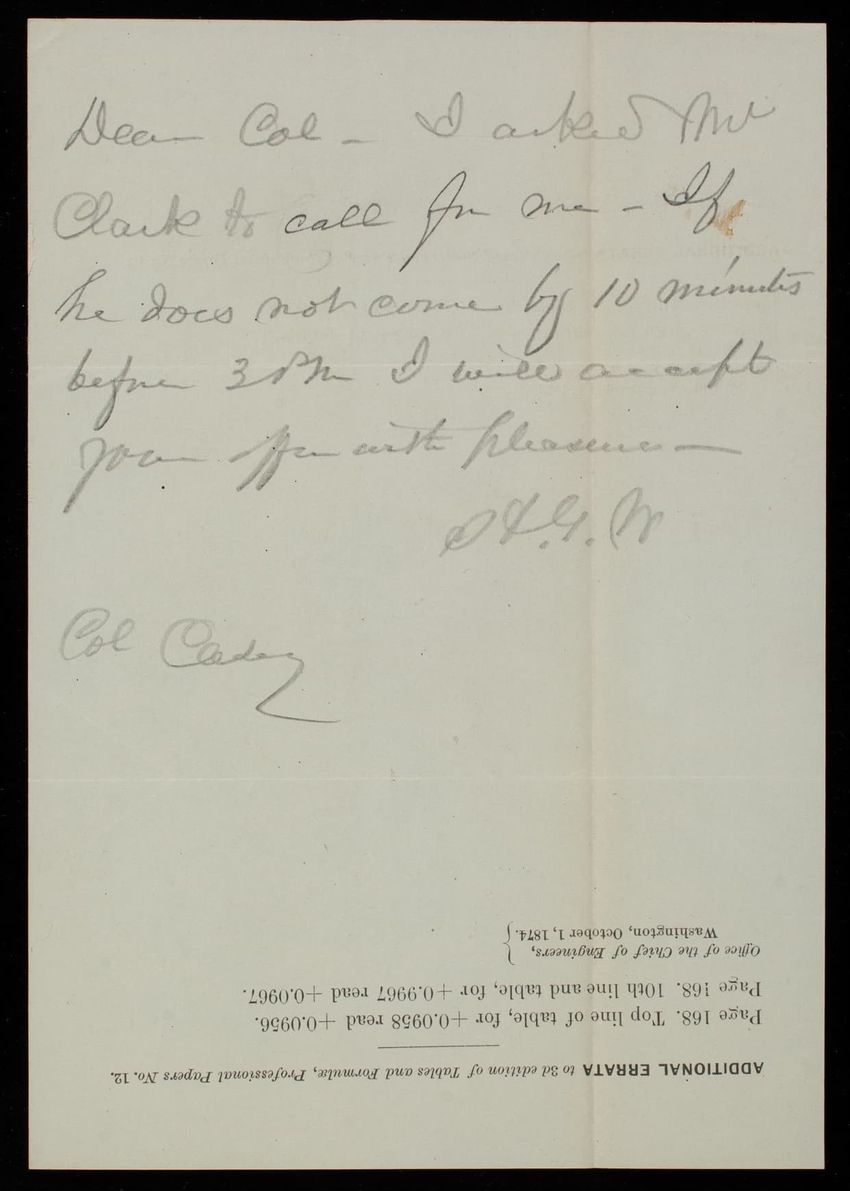 Dear Col - I asked Mr
Clark to call for me - If
he does not come by 10 minutes
before 3 PM I will accept
your offer with pleasure -
H.G.W
Col Casey
ADDITIONAL ERRATA to 3d edition of Tables and Formulæ, Professional Papers No. 12.
Page 168. Top line of table, for +0.0958 read +0.0956.
Page 168. 10th line and table, for +0.9967 read +0.0967.
Office of the Chief of Engineers,
Washington, October 1, 1874.